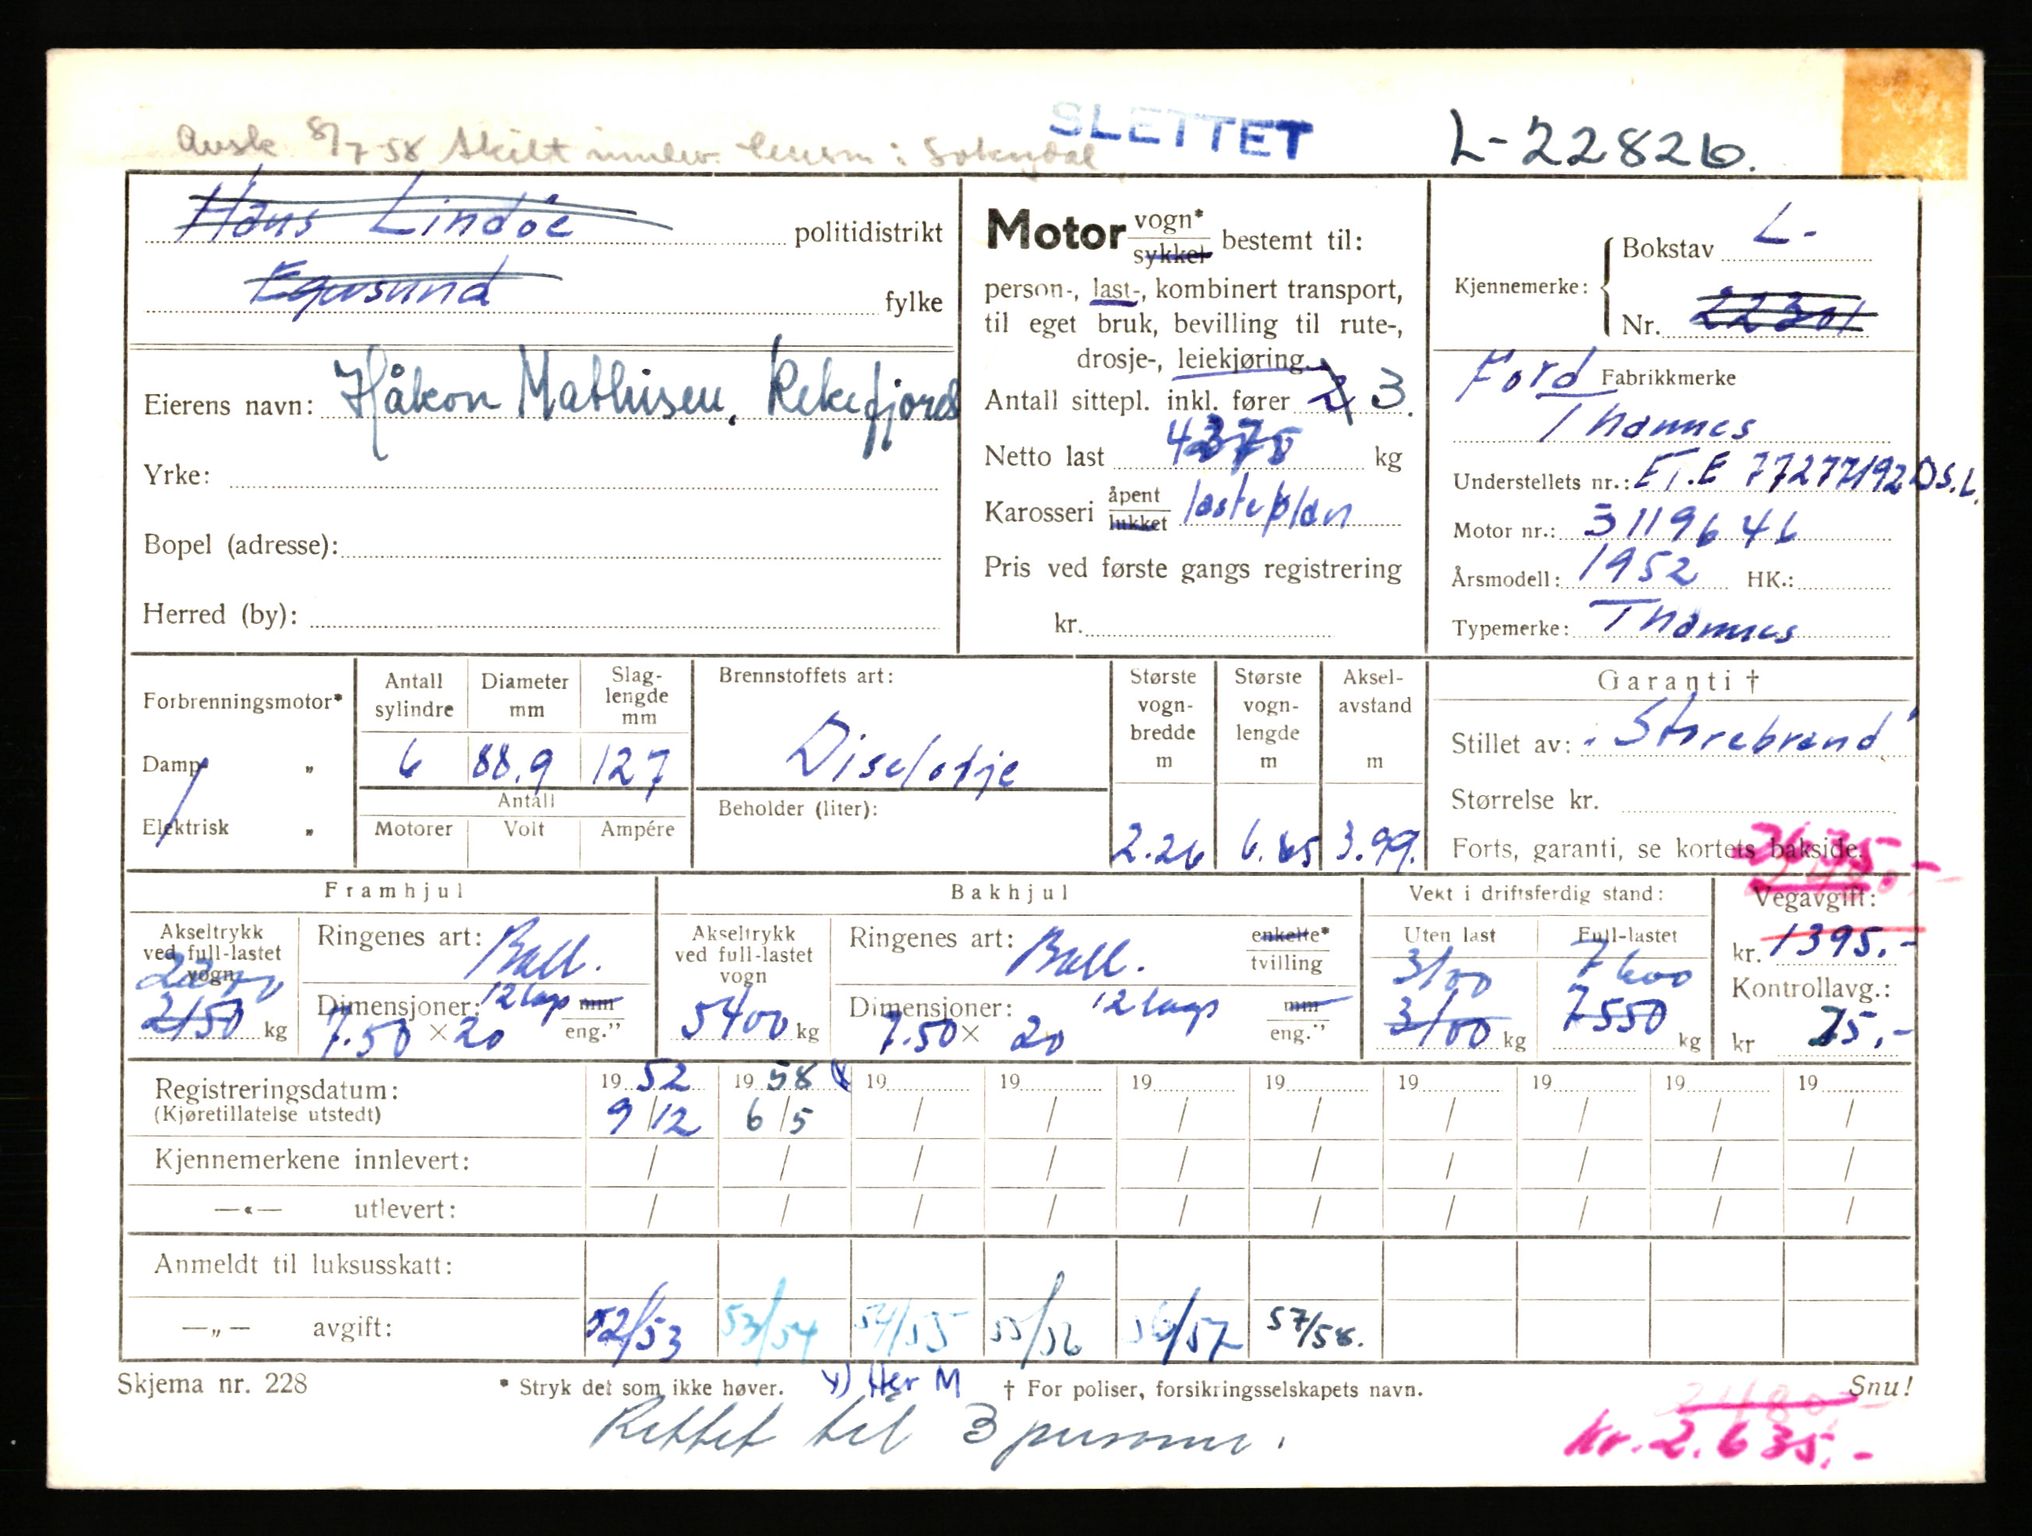 Avsk 8/7-58 Skilt innlev. lensm. i Sokndal
SLETTET
L-22826.
Hans Lindöe politidistrikt
Egersund fylke
Eierens navn: Håkon Mathisen, Rekefjord
Yrke:
Bopel (adresse):
Herred (by):
Motor vogn* sykkel bestemt til:
person-, last-, kombinert transport,
til eget bruk, bevilling til rute-,
drosje-, leiekjøring.
Antall sittepl. inkl. fører 2 3.
Netto last 4375 kg
Karosseri åpent lukket lasteplan
Pris ved første gangs registrering
kr.
Kjennemerke: Bokstav L-
Nr. 22301
Ford Fabrikkmerke
Thames
Understellets nr.: ET.E 77277/192DS.L.
Motor nr.: 3119646
Årsmodell: 1952 HK.:
Typemerke: Thames
Forbrenningsmotor*
Damp „
Elektrisk „
Antall sylindre 6
Diameter mm 88.9
Slaglengde mm 127
Antall
Motorer Volt Ampére
Brennstoffets art:
Diselolje
Beholder (liter):
Største vognbredde m 2.26
Største vognlengde m 6.65
Akselavstand m 3.99.
Garanti †
Stillet av: "Storebrand"
Størrelse kr.
Forts, garanti, se kortets bakside.
Framhjul
Akseltrykk ved full-lastet vogn 2200 2150 kg
Ringenes art: Ball.
Dimensjoner: 12 lags mm
7.50 × 20 eng."
Bakhjul
Akseltrykk ved full-lastet vogn 5400 kg
Ringenes art: Ball. enkelte* tvilling
Dimensjoner: 12 lags mm
7.50 × 20 eng."
Vekt i driftsferdig stand:
Uten last Full-lastet
3100 7600
3100 kg 7550 kg
Vegavgift:
kr. 1395.-
Kontrollavg.:
kr 25.-
Registreringsdatum: 1952 1958 19 19 19 19 19 19 19 19
(Kjøretillatelse utstedt) 9/12 6/5 / / / / / / / /
Kjennemerkene innlevert: / / / / / / / / / /
—«— utlevert: / / / / / / / / / /
Anmeldt til luksusskatt:
—„— avgift: 52/53 53/54 54/55 55/56 56/57 57/58.
Skjema nr. 228 * Stryk det som ikke høver. x) Her M † For poliser, forsikringsselskapets navn. Snu!
Rettet til 3 personer.
2480.-
kr. 2.635.-